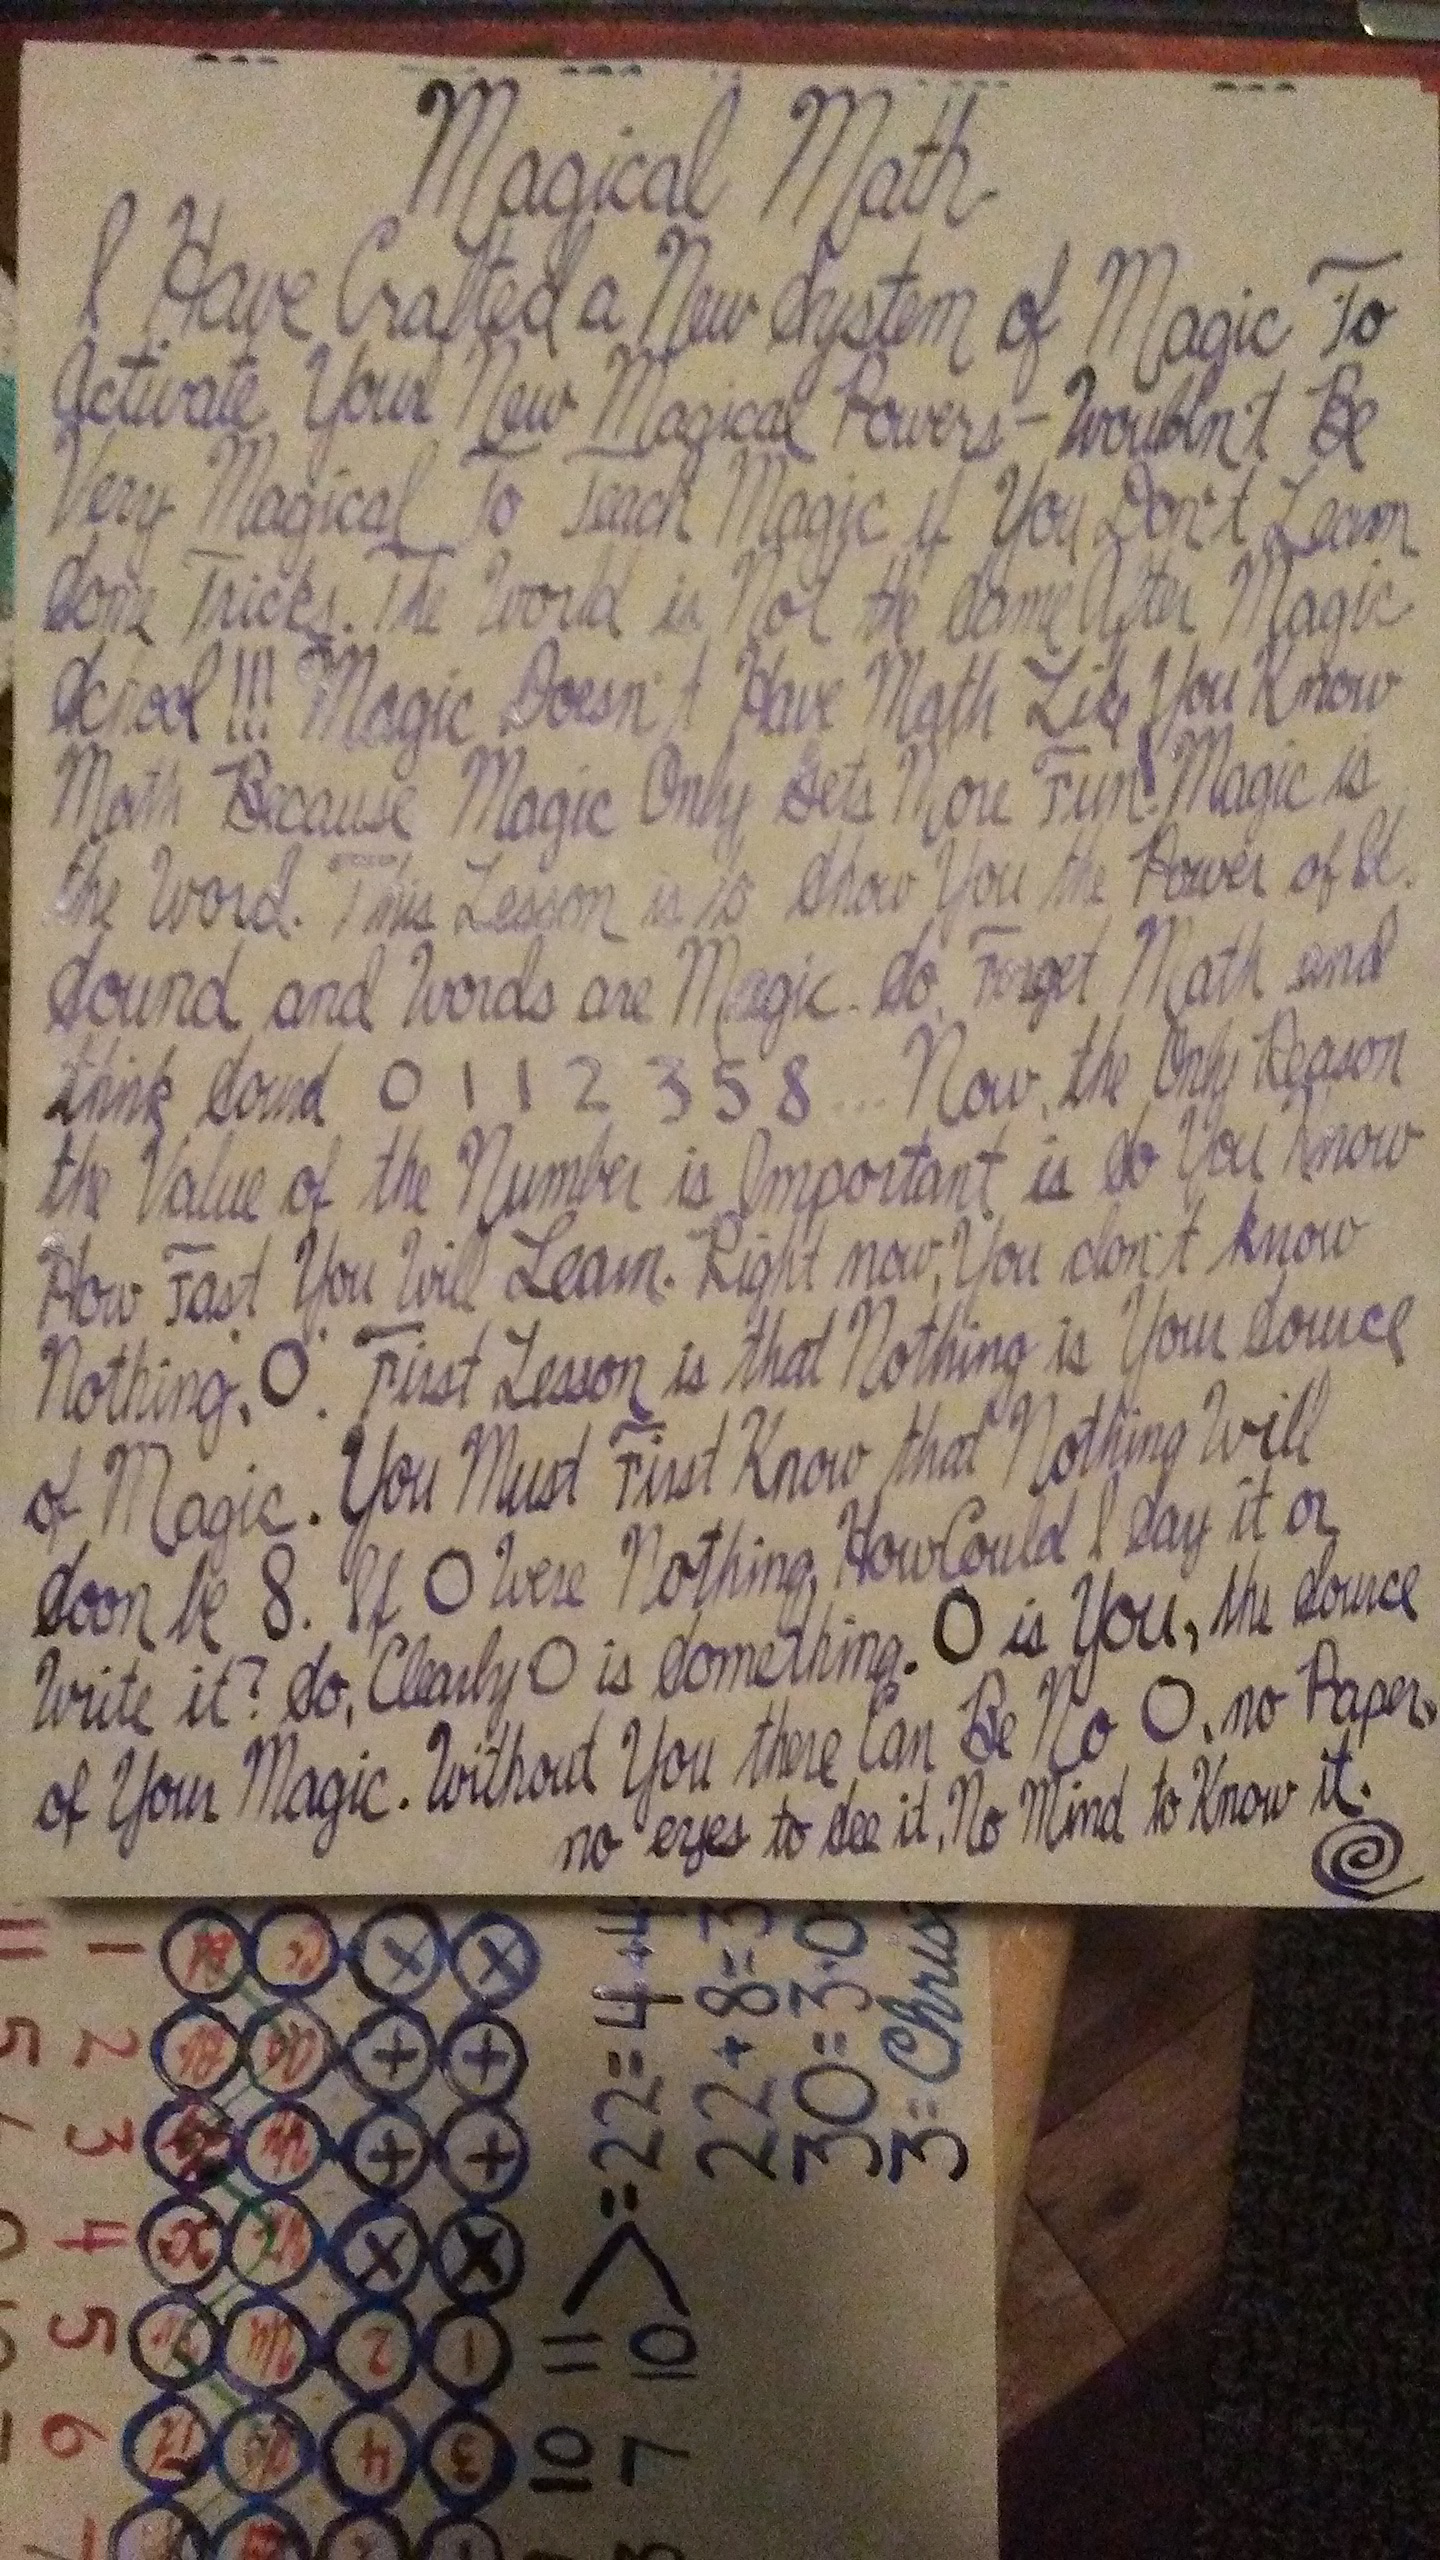 Magical Math
I Have Crafted a New System of Magic To
Activate Your New Magical Powers - Wouldn't Be
Very Magical To Teach Magic if You Don't Learn
Some Tricks. The World is Not the Same After Magic
School!!! Magic Doesn't Have Math Like You Know
Math Because Magic Only Gets More Fun! Magic is
the Word. This Lesson is to Show You the Power of It.
Sound and Words are Magic. So, Forget Math and
think Sound 0 1 1 2 3 5 8 ... Now, the Only Reason
the Value of the Number is Important is So You Know
How Fast You Will Learn. Right now, You don't know
Nothing, 0. First Lesson is that Nothing is Your Source
of Magic. You Must First Know that Nothing Will
Soon be 8. If 0 Were Nothing, How Could I Say it or
Write it? So, Clearly 0 is Something. 0 is You, the Source
of Your Magic. Without You there Can Be No 0, no Paper,
no eyes to See it, No Mind to Know it.
1 2 3 4 5 6
X + + X 2 4
X + + X 1 3
11 10
10 7
= 22 = 4
22 + 8 = 3
30 = 3 · 0
3 = Chris